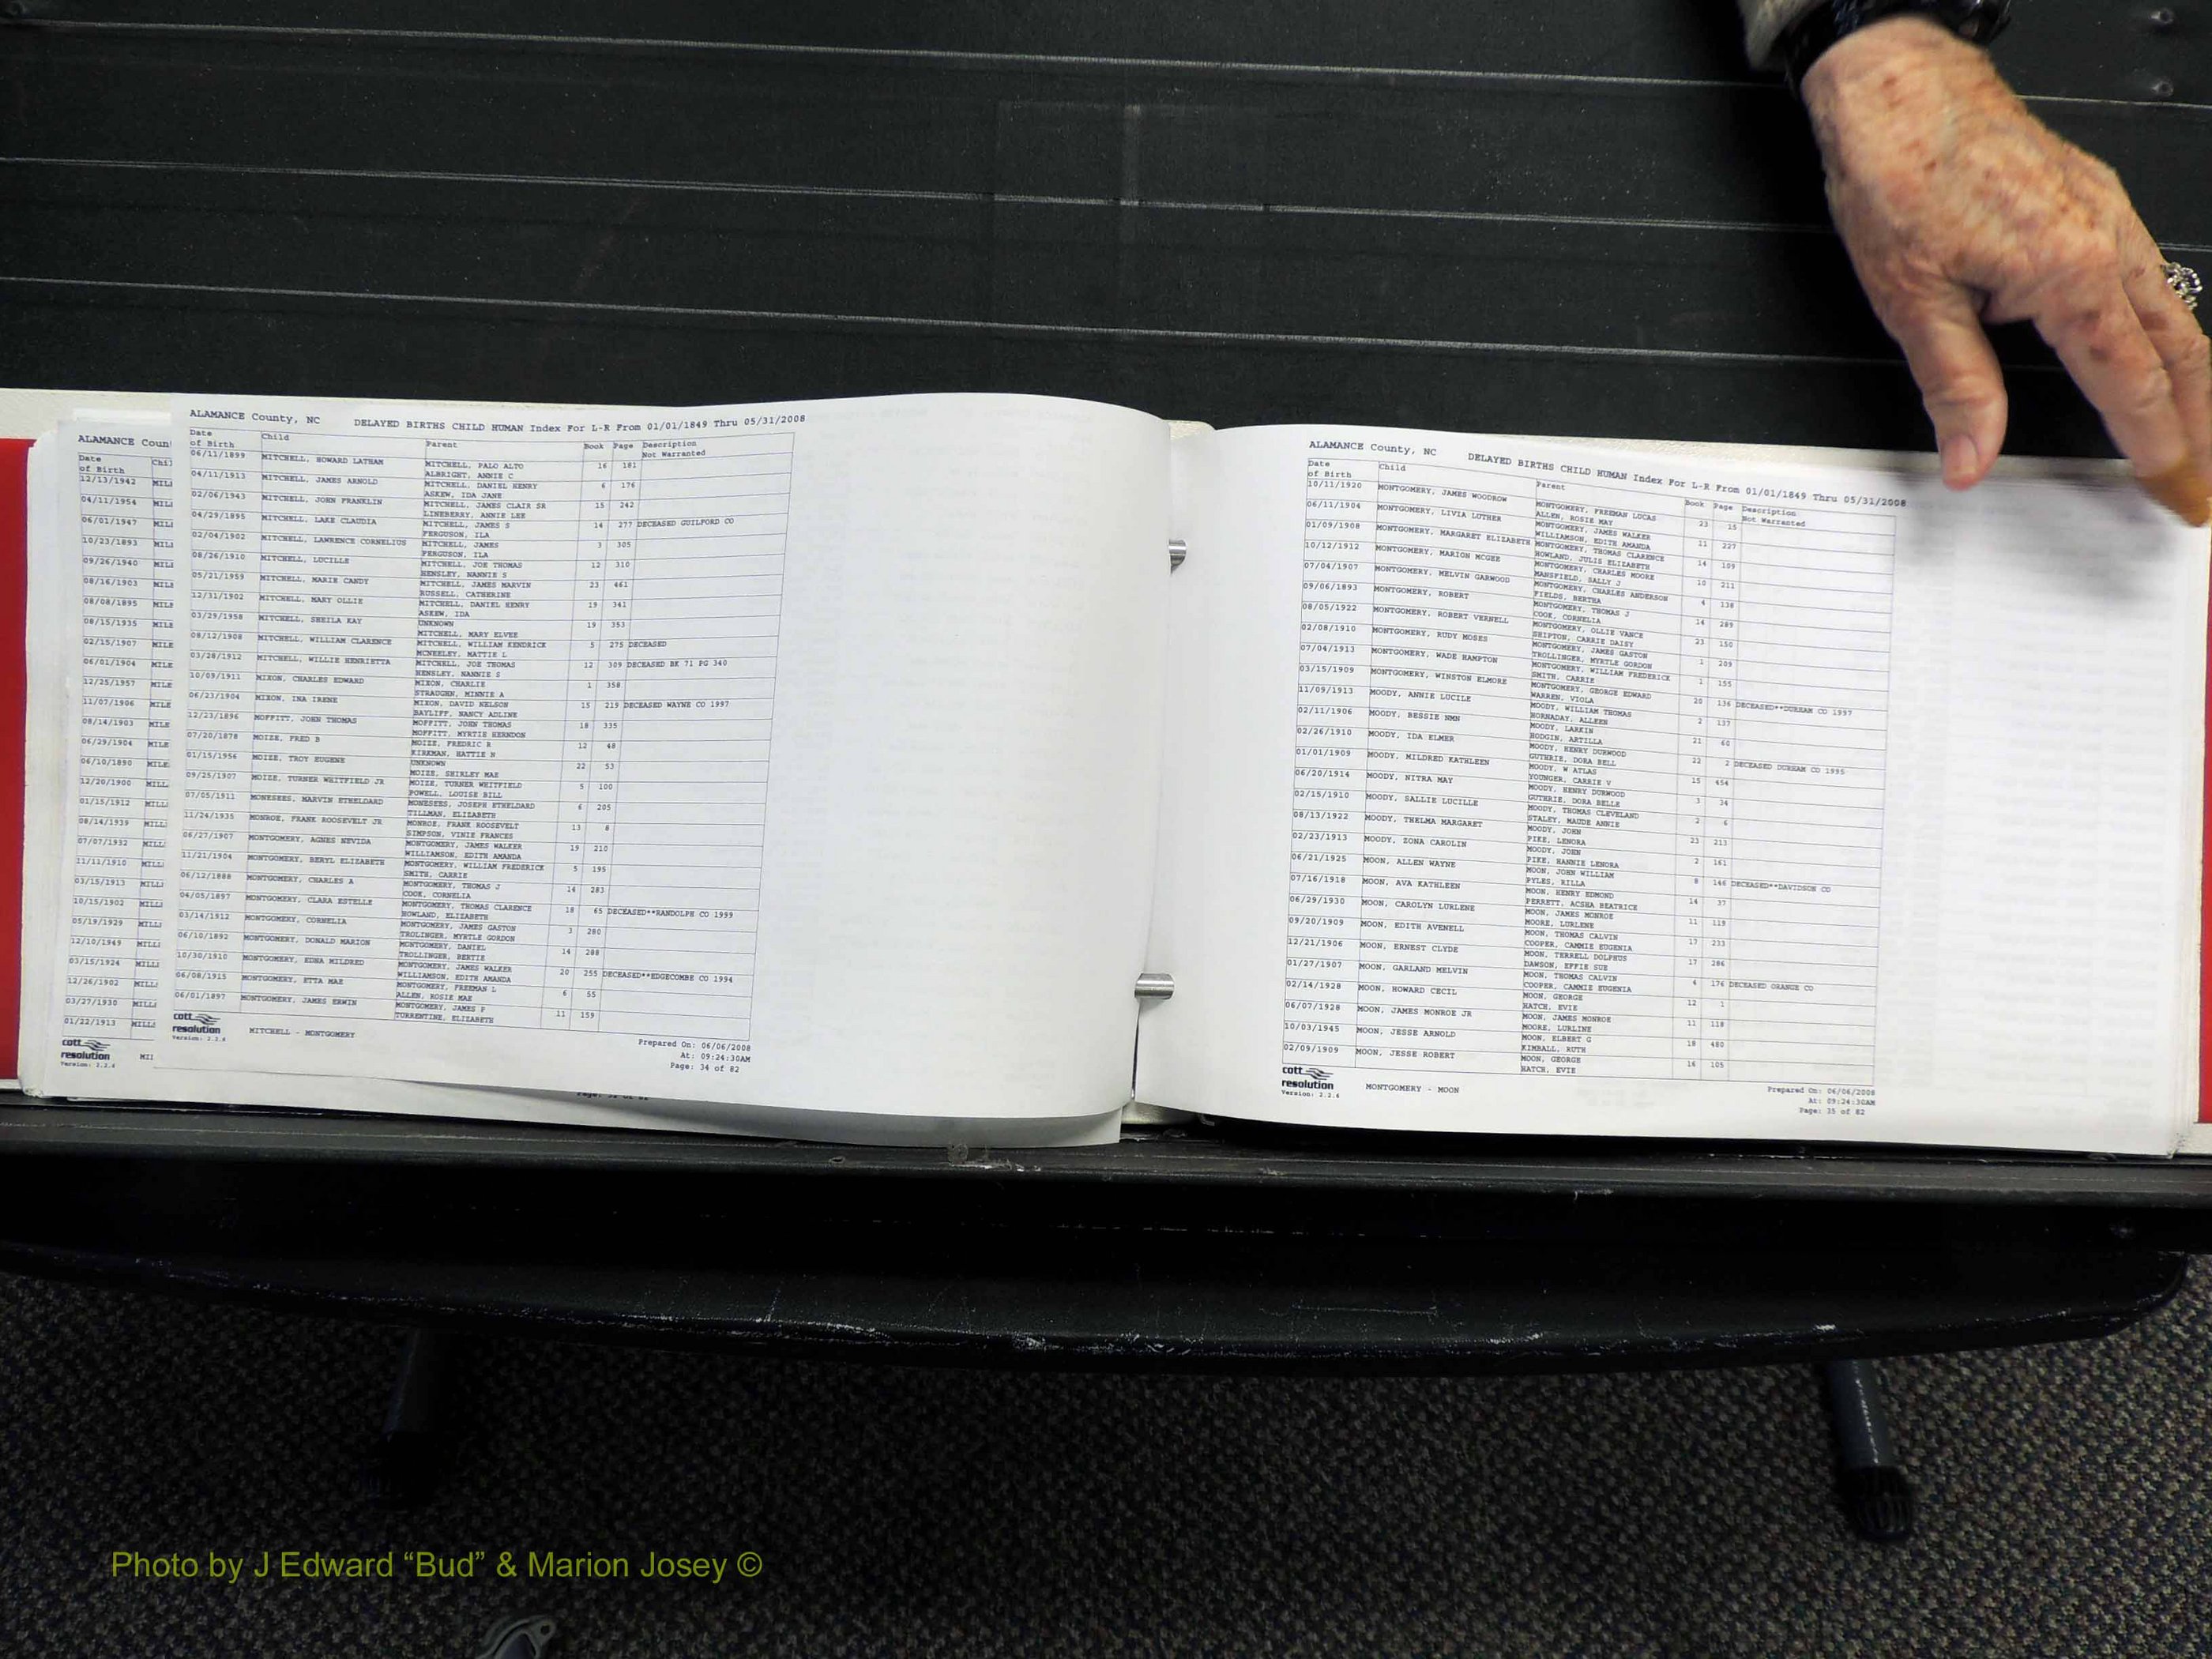 ALAMANCE Coun
Date
of Birth
Chi
12/13/1942 MILL
04/11/1954 MIL
06/01/1947 MIL
10/23/1893 MIL
09/26/1940 MIL
08/16/1903 MILE
08/08/1895 MILE
08/15/1935 MILE
02/15/1907 MILE
06/01/1904 MILE
12/25/1957 MILE
11/07/1906 MILE
08/14/1903 MILE
06/29/1904 MILE
06/10/1890 MILE
12/20/1900 MILL
01/15/1912 MILL
08/14/1939 MILL
07/07/1932 MILL
11/11/1910 MILL
03/15/1913 MILLI
10/15/1902 MILLI
05/19/1929 MILLI
12/10/1949 MILLI
03/15/1924 MILLI
12/26/1902 MILLI
03/27/1930 MILLI
01/22/1913 MILL
cott
resolution
Version: 2.2.6
MII
ALAMANCE County, NC DELAYED BIRTHS CHILD HUMAN Index For L-R From 01/01/1849 Thru 05/31/2008
Date of Birth Child Parent Book Page Description
Not Warranted
06/11/1899 MITCHELL, HOWARD LATHAM MITCHELL, PALO ALTO 16 181
ALBRIGHT, ANNIE C
04/11/1913 MITCHELL, JAMES ARNOLD MITCHELL, DANIEL HENRY 6 176
ASKEW, IDA JANE
02/06/1943 MITCHELL, JOHN FRANKLIN MITCHELL, JAMES CLAIR SR 15 242
LINEBERRY, ANNIE LEE
04/29/1895 MITCHELL, LAKE CLAUDIA MITCHELL, JAMES S 14 277 DECEASED GUILFORD CO
FERGUSON, ILA
02/04/1902 MITCHELL, LAWRENCE CORNELIUS MITCHELL, JAMES 3 305
FERGUSON, ILA
08/26/1910 MITCHELL, LUCILLE MITCHELL, JOE THOMAS 12 310
HENSLEY, NANNIE S
05/21/1959 MITCHELL, MARIE CANDY MITCHELL, JAMES MARVIN 23 461
RUSSELL, CATHERINE
12/31/1902 MITCHELL, MARY OLLIE MITCHELL, DANIEL HENRY 19 341
ASKEW, IDA
03/29/1958 MITCHELL, SHEILA KAY UNKNOWN 19 353
MITCHELL, MARY ELVEE
08/12/1908 MITCHELL, WILLIAM CLARENCE MITCHELL, WILLIAM KENDRICK 5 275 DECEASED
MCNEELEY, MATTIE L
03/28/1912 MITCHELL, WILLIE HENRIETTA MITCHELL, JOE THOMAS 12 309 DECEASED BK 71 PG 340
HENSLEY, NANNIE S
10/09/1911 MIXON, CHARLES EDWARD MIXON, CHARLIE 1 358
STRAUGHN, MINNIE A
06/23/1904 MIXON, INA IRENE MIXON, DAVID NELSON 15 219 DECEASED WAYNE CO 1997
BAYLIFF, NANCY ADLINE
12/23/1896 MOFFITT, JOHN THOMAS MOFFITT, JOHN THOMAS 18 335
MOFFITT, MYRTIE HERNDON
07/20/1878 MOIZE, FRED B MOIZE, FREDRIC R 12 48
KIRKMAN, HATTIE N
01/15/1956 MOIZE, TROY EUGENE UNKNOWN 22 53
MOIZE, SHIRLEY MAE
09/25/1907 MOIZE, TURNER WHITFIELD JR MOIZE, TURNER WHITFIELD 5 100
POWELL, LOUISE BILL
07/05/1911 MONESEES, MARVIN ETHELDARD MONESEES, JOSEPH ETHELDARD 6 205
TILLMAN, ELIZABETH
11/24/1935 MONROE, FRANK ROOSEVELT JR MONROE, FRANK ROOSEVELT 13 8
SIMPSON, VINIE FRANCES
06/27/1907 MONTGOMERY, AGNES NEVIDA MONTGOMERY, JAMES WALKER 19 210
WILLIAMSON, EDITH AMANDA
11/21/1904 MONTGOMERY, BERYL ELIZABETH MONTGOMERY, WILLIAM FREDERICK 5 195
SMITH, CARRIE
06/12/1888 MONTGOMERY, CHARLES A MONTGOMERY, THOMAS J 14 283
COOK, CORNELIA
04/05/1897 MONTGOMERY, CLARA ESTELLE MONTGOMERY, THOMAS CLARENCE 18 65 DECEASED**RANDOLPH CO 1999
HOWLAND, ELIZABETH
03/14/1912 MONTGOMERY, CORNELIA MONTGOMERY, JAMES GASTON 3 280
TROLINGER, MYRTLE GORDON
06/10/1892 MONTGOMERY, DONALD MARION MONTGOMERY, DANIEL 14 288
TROLLINGER, BERTIE
10/30/1910 MONTGOMERY, EDNA MILDRED MONTGOMERY, JAMES WALKER 20 255 DECEASED**EDGECOMBE CO 1994
WILLIAMSON, EDITH AMANDA
06/08/1915 MONTGOMERY, ETTA MAE MONTGOMERY, FREEMAN L 6 55
ALLEN, ROSIE MAE
06/01/1897 MONTGOMERY, JAMES ERWIN MONTGOMERY, JAMES P 11 159
TORRENTINE, ELIZABETH
cott
resolution
Version: 2.2.6
MITCHELL - MONTGOMERY
Prepared On: 06/06/2008
At: 09:24:30AM
Page: 34 of 82
ALAMANCE County, NC DELAYED BIRTHS CHILD HUMAN Index For L-R From 01/01/1849 Thru 05/31/2008
Date of Birth Child Parent Book Page Description
Not Warranted
10/11/1920 MONTGOMERY, JAMES WOODROW MONTGOMERY, FREEMAN LUCAS 23 15
ALLEN, ROSIE MAY
06/11/1904 MONTGOMERY, LIVIA LUTHER MONTGOMERY, JAMES WALKER 11 227
WILLIAMSON, EDITH AMANDA
01/09/1908 MONTGOMERY, MARGARET ELIZABETH MONTGOMERY, THOMAS CLARENCE 14 109
HOWLAND, JULIS ELIZABETH
10/12/1912 MONTGOMERY, MARION MCGEE MONTGOMERY, CHARLES MOORE 10 211
MANSFIELD, SALLY J
07/04/1907 MONTGOMERY, MELVIN GARWOOD MONTGOMERY, CHARLES ANDERSON 4 138
FIELDS, BERTHA
09/06/1893 MONTGOMERY, ROBERT MONTGOMERY, THOMAS J 14 289
COOK, CORNELIA
08/05/1922 MONTGOMERY, ROBERT VERNELL MONTGOMERY, OLLIE VANCE 23 150
SHIPTON, CARRIE DAISY
02/08/1910 MONTGOMERY, RUDY MOSES MONTGOMERY, JAMES GASTON 1 209
TROLLINGER, MYRTLE GORDON
07/04/1913 MONTGOMERY, WADE HAMPTON MONTGOMERY, WILLIAM FREDERICK 1 155
SMITH, CARRIE
03/15/1909 MONTGOMERY, WINSTON ELMORE MONTGOMERY, GEORGE EDWARD 20 136 DECEASED**DURHAM CO 1997
WARREN, VIOLA
11/09/1913 MOODY, ANNIE LUCILE MOODY, WILLIAM THOMAS 2 137
HORNADAY, ALLEEN
02/11/1906 MOODY, BESSIE NMN MOODY, LARKIN 21 60
HODGIN, ARTILLA
02/26/1910 MOODY, IDA ELMER MOODY, HENRY DURWOOD 22 2 DECEASED DURHAM CO 1995
GUTHRIE, DORA BELL
01/01/1909 MOODY, MILDRED KATHLEEN MOODY, W ATLAS 15 454
YOUNGER, CARRIE V
06/20/1914 MOODY, NITRA MAY MOODY, HENRY DURWOOD 3 34
GUTHRIE, DORA BELLE
02/15/1910 MOODY, SALLIE LUCILLE MOODY, THOMAS CLEVELAND 2 6
STALEY, MAUDE ANNIE
08/13/1922 MOODY, THELMA MARGARET MOODY, JOHN 23 213
PIKE, LENORA
02/23/1913 MOODY, ZONA CAROLIN MOODY, JOHN 2 161
PIKE, HANNIE LENORA
06/21/1925 MOON, ALLEN WAYNE MOON, JOHN WILLIAM 8 146 DECEASED**DAVIDSON CO
PYLES, RILLA
07/16/1918 MOON, AVA KATHLEEN MOON, HENRY EDMOND 14 37
PERRETT, ACSHA BEATRICE
06/29/1930 MOON, CAROLYN LURLENE MOON, JAMES MONROE 11 119
MOORE, LURLENE
09/20/1909 MOON, EDITH AVENELL MOON, THOMAS CALVIN 17 233
COOPER, CAMMIE EUGENIA
12/21/1906 MOON, ERNEST CLYDE MOON, TERRELL DOLPHUS 17 286
DAWSON, EFFIE SUE
01/27/1907 MOON, GARLAND MELVIN MOON, THOMAS CALVIN 4 176 DECEASED ORANGE CO
COOPER, CAMMIE EUGENIA
02/14/1928 MOON, HOWARD CECIL MOON, GEORGE 12 1
HATCH, EVIE
06/07/1928 MOON, JAMES MONROE JR MOON, JAMES MONROE 11 118
MOORE, LURLINE
10/03/1945 MOON, JESSE ARNOLD MOON, ELBERT G 18 480
KIMBALL, RUTH
02/09/1909 MOON, JESSE ROBERT MOON, GEORGE 16 105
HATCH, EVIE
cott
resolution
Version: 2.2.6
MONTGOMERY - MOON
Prepared On: 06/06/2008
At: 09:24:30AM
Page: 35 of 82
Photo by J Edward “Bud” & Marion Josey ©